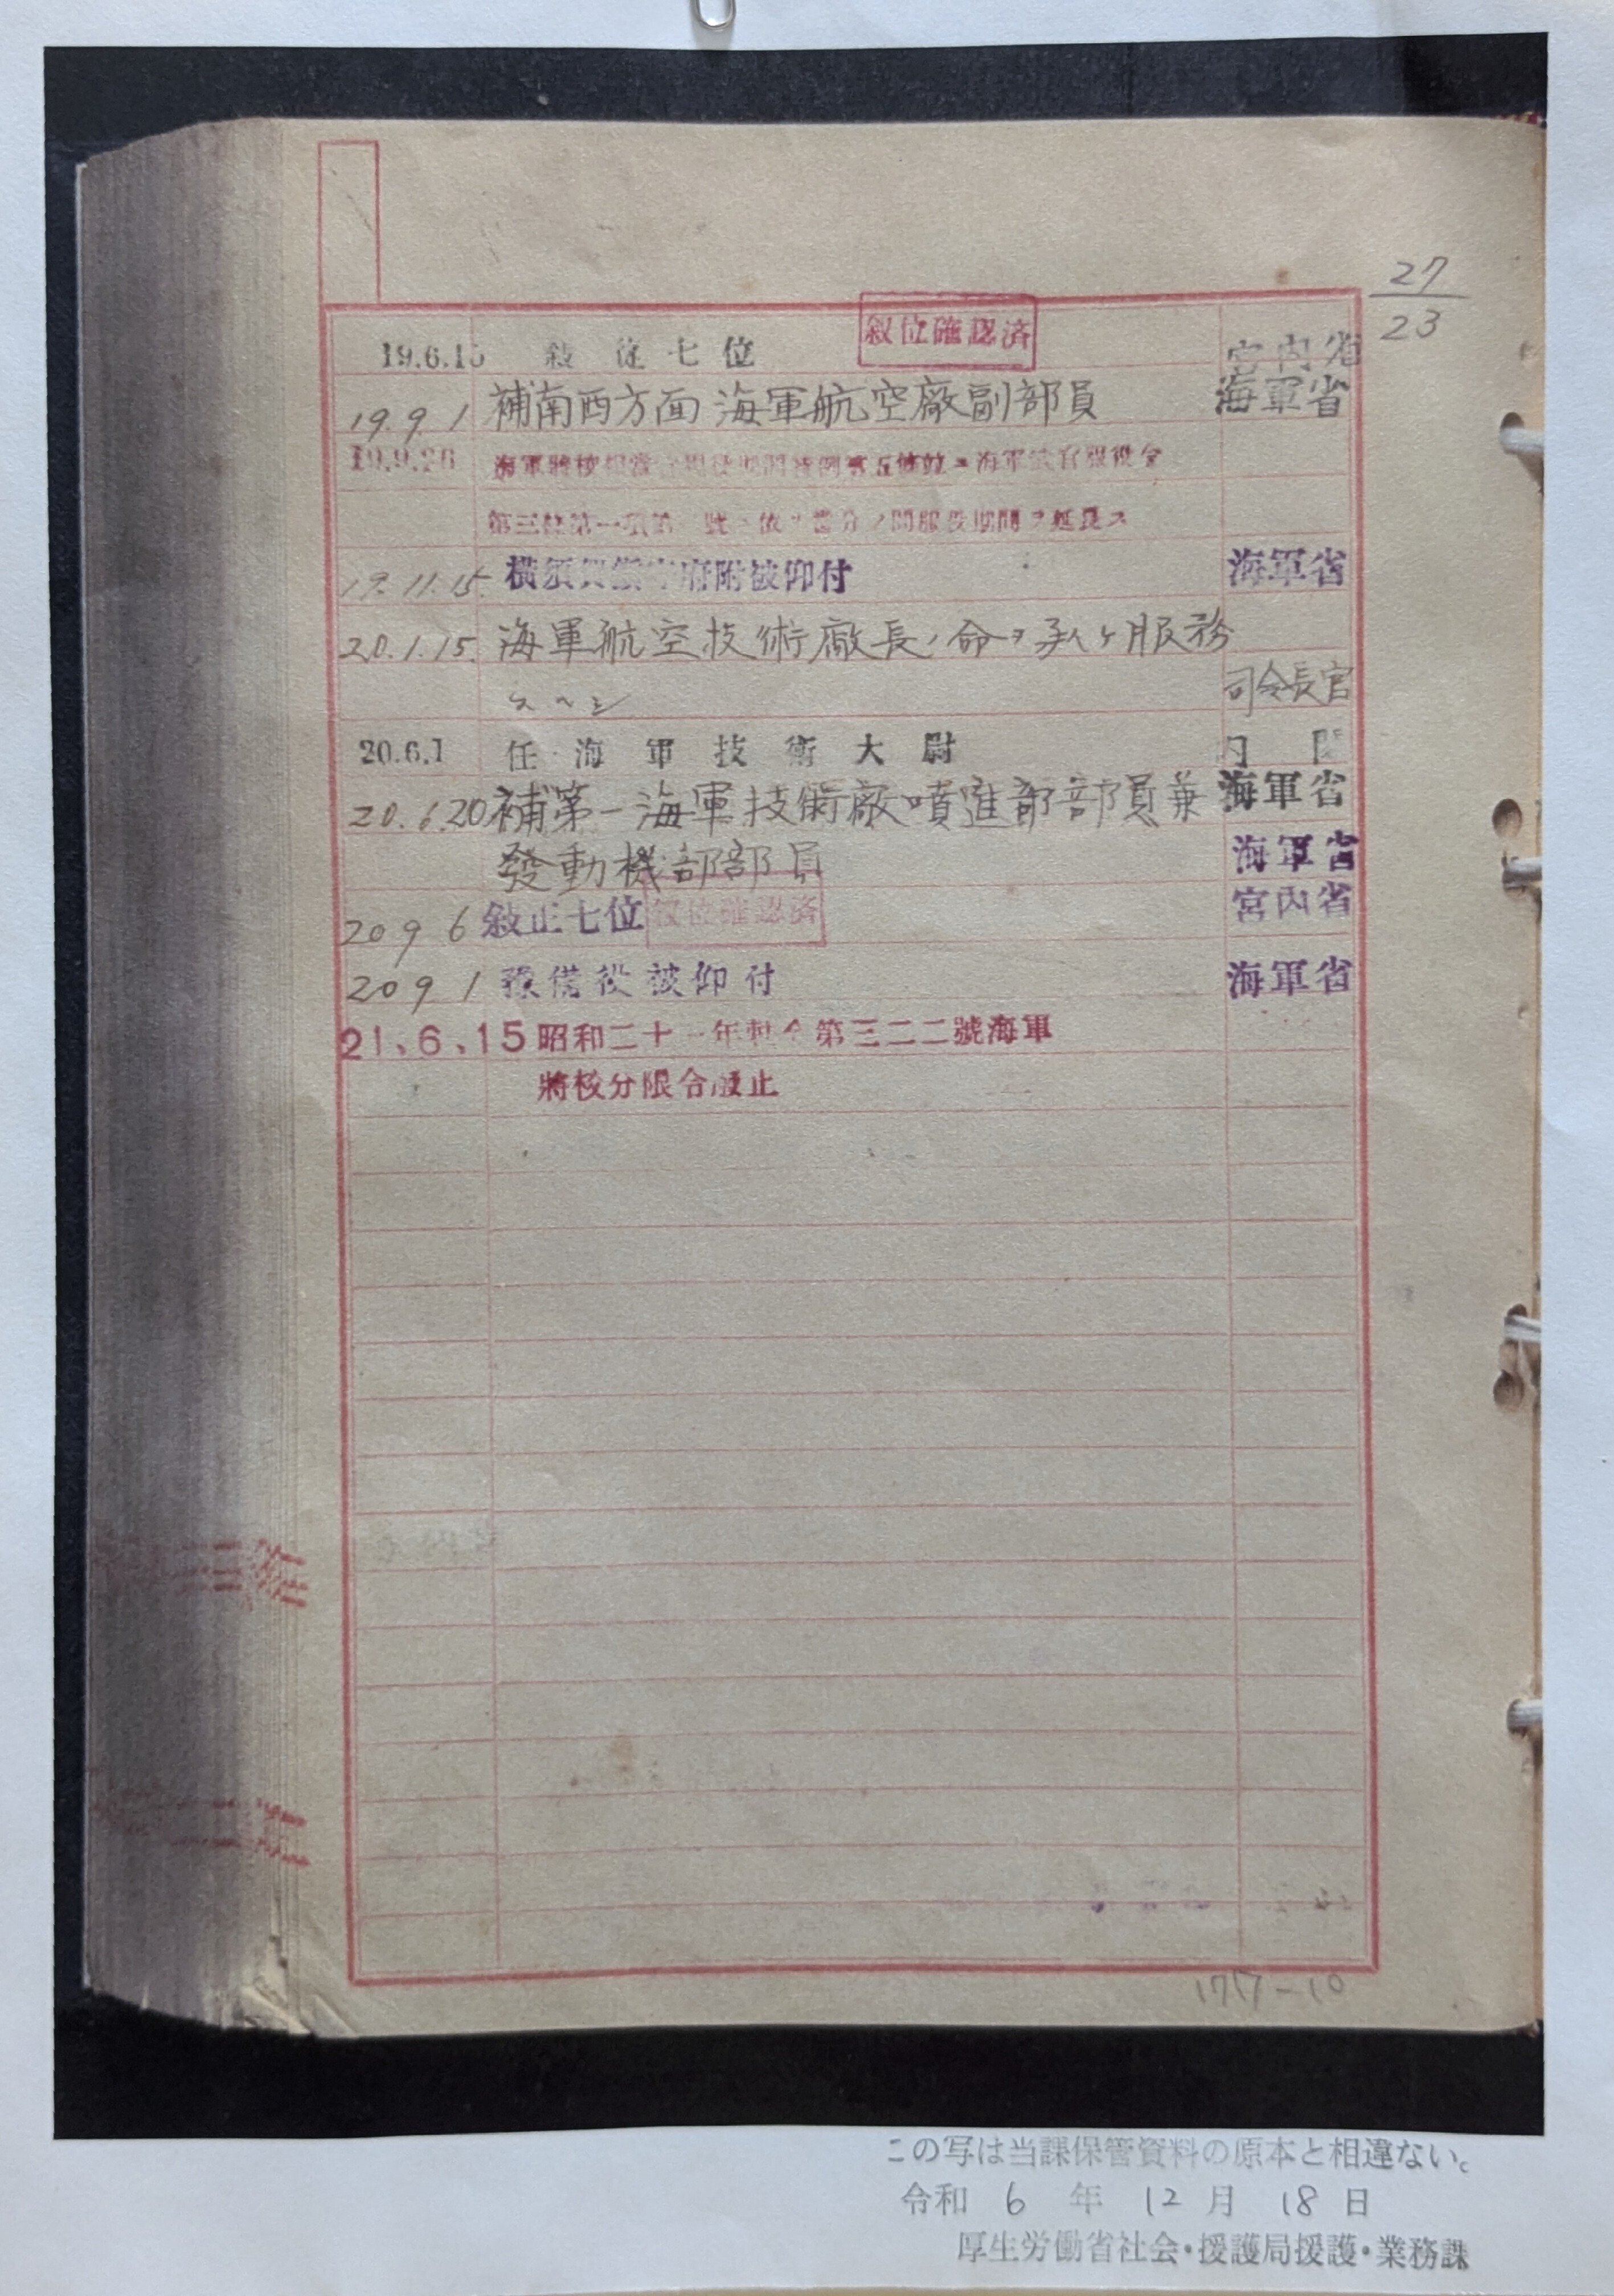 27
23
叙位確認済
19.6.15 敍從七位 宮内省
19.9.1 補南西方面海軍航空廠副部員 海軍省
19.9.26 海軍 海軍武官服役令
第三條第一項第 號ニ依リ當分ノ間服役期間ヲ延長ス
19.11.15. 横須賀鎮守府附被仰付 海軍省
20.1.15. 海軍航空技術廠長ノ命ヲ承ケ服務
スヘシ 司令長官
20.6.1 任海軍技術大尉 内閣
20.6.20 補第一海軍技術廠噴進部部員兼 海軍省
發動機部部員 海軍省
20 9 6 敍正七位 叙位確認済 宮内省
20 9 1 豫備役被仰付 海軍省
21.6.15 昭和二十一年勅令第三二二號海軍
將校分限令廢止
1717-10
この写は当課保管資料の原本と相違ない。
令和 6 年 12 月 18 日
厚生労働省社会・援護局援護・業務課